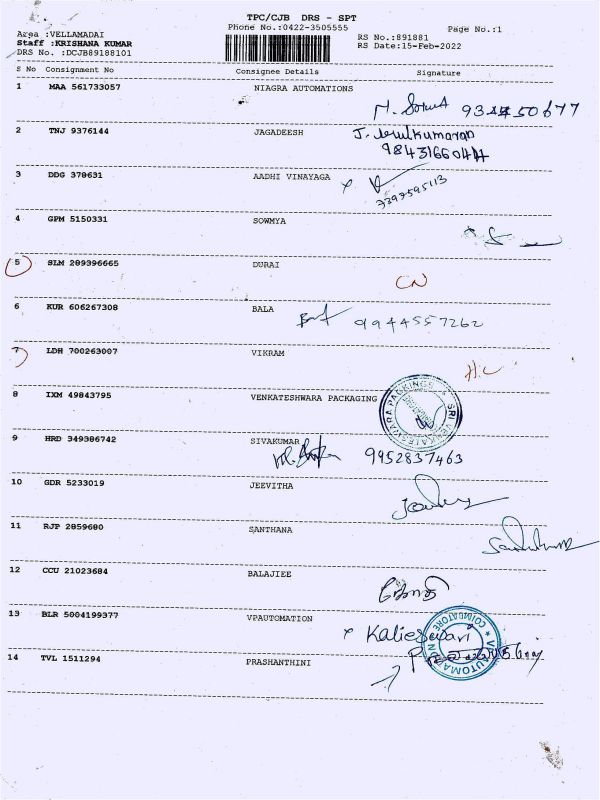 TPC/CJB DRS - SPT
Phone No.:0422-3505555
Page No.:1
Area :VELLAMADAI
Staff :KRISHANA KUMAR
DRS No. :DCJB89188101
RS No.:891881
RS Date:15-Feb-2022
S No Consignment No Consignee Details Signature
1 MAA 561733057 NIAGRA AUTOMATIONS
2 TNJ 9376144 JAGADEESH J. Arulkumaran
9843166044
3 DDG 378631 AADHI VINAYAGA
4 GPM 5150331 SOWMYA
5 SLM 289396665 DURAI CN
6 KUR 606267308 BALA 9944557262
7 LDH 700263007 VIKRAM
8 IXM 49843795 VENKATESHWARA PACKAGING SRI VENKATESWARA PACKINGS
9 HRD 349386742 SIVAKUMAR 9952837463
10 GDR 5233019 JEEVITHA
11 RJP 2859680 SANTHANA
12 CCU 21023684 BALAJIEE
13 BLR 5004199377 VPAUTOMATION x Kalieswari VP AUTOMATION COIMBATORE
14 TVL 1511294 PRASHANTHINI